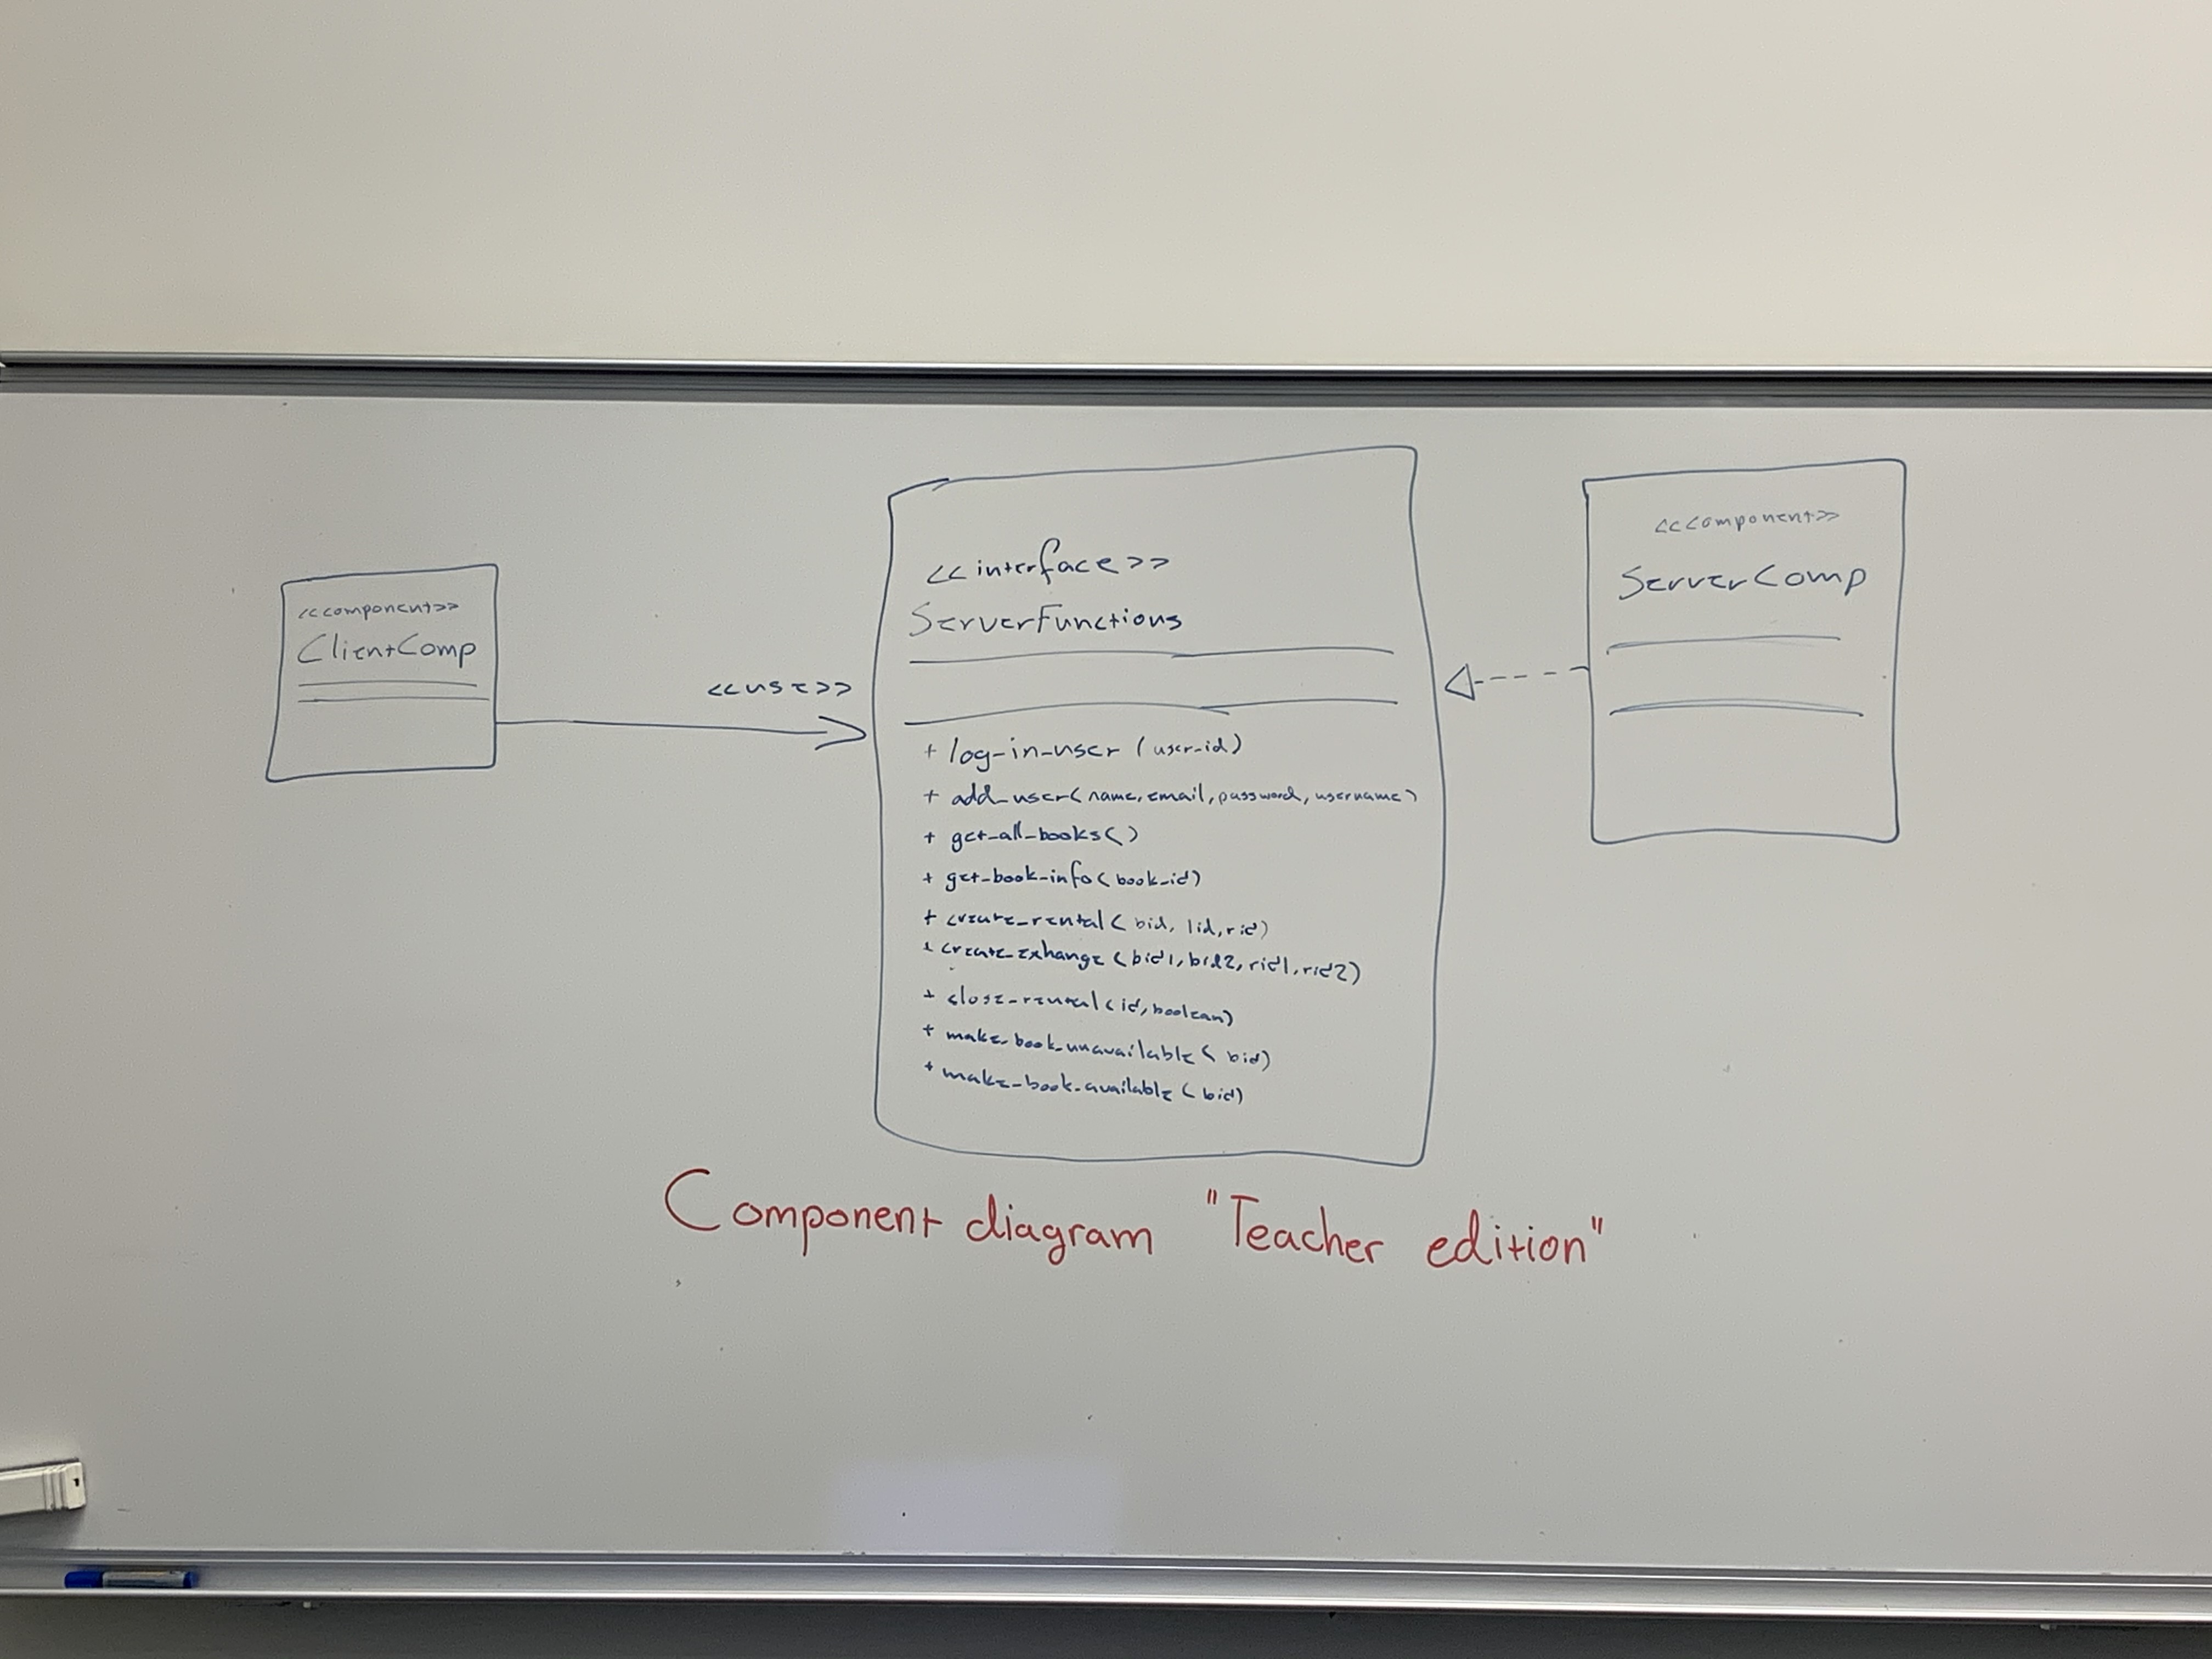 <<component>>
ClientComp
<<use>>
<<interface>>
ServerFunctions
+ log_in_user (user_id)
+ add_user(name, email, password, username)
+ get_all_books()
+ get_book_info(book_id)
+ create_rental(bid, lid, rid)
+ create_exhange (bid1, bid2, rid1, rid2)
+ close_rental(id, boolean)
+ make_book_unavailable(bid)
+ make_book_available(bid)
<<component>>
ServerComp
Component diagram "Teacher edition"